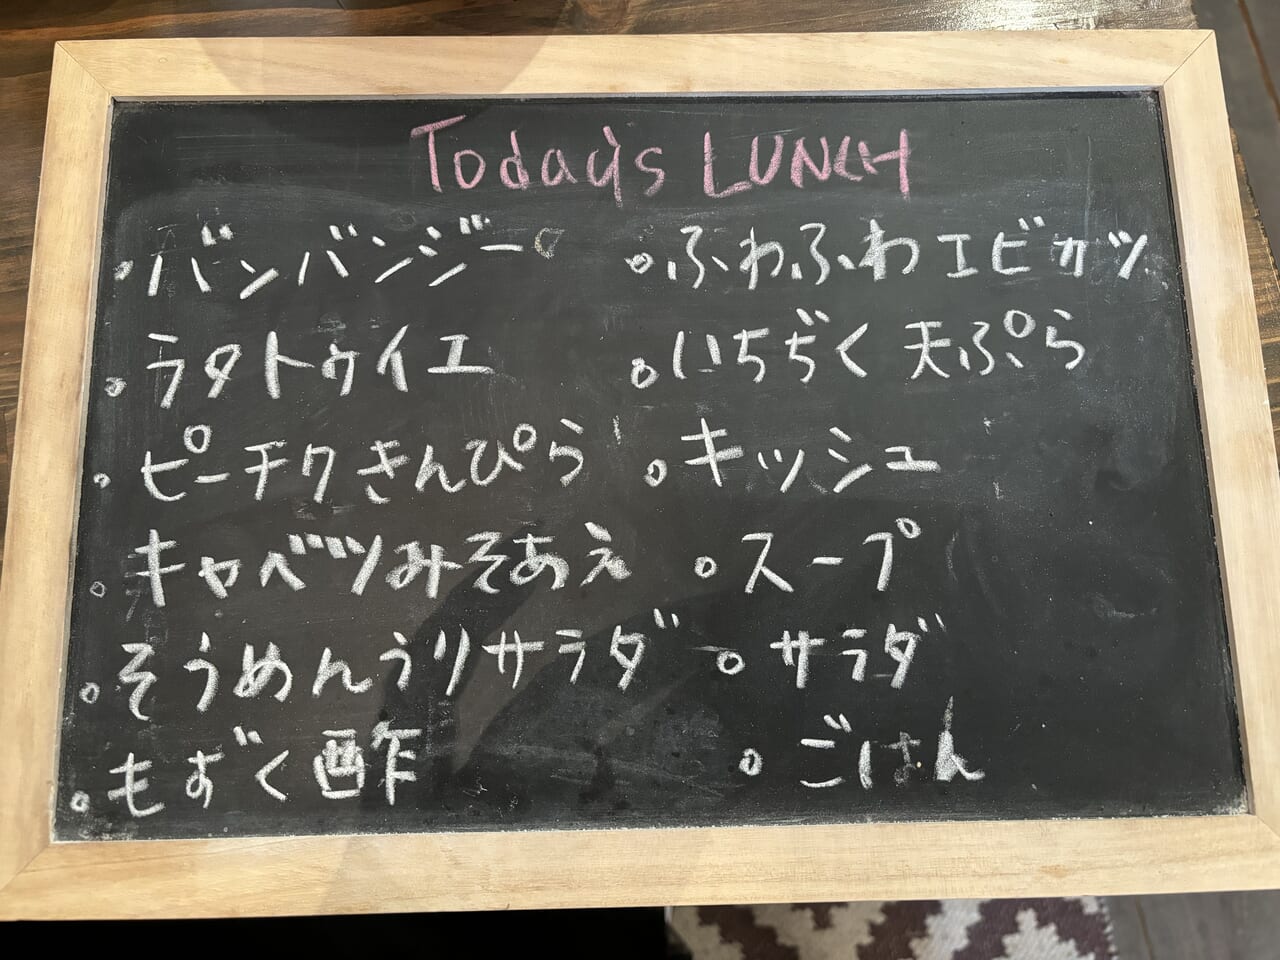 Today's LUNCH
。バンバンジー
。ラタトゥイエ
。ピーチクきんぴら
。キャベツみそあえ
。そうめんうりサラダ
。もずく酢
。ふわふわエビカツ
。いちぢく天ぷら
。キッシュ
。スープ
。サラダ
。ごはん